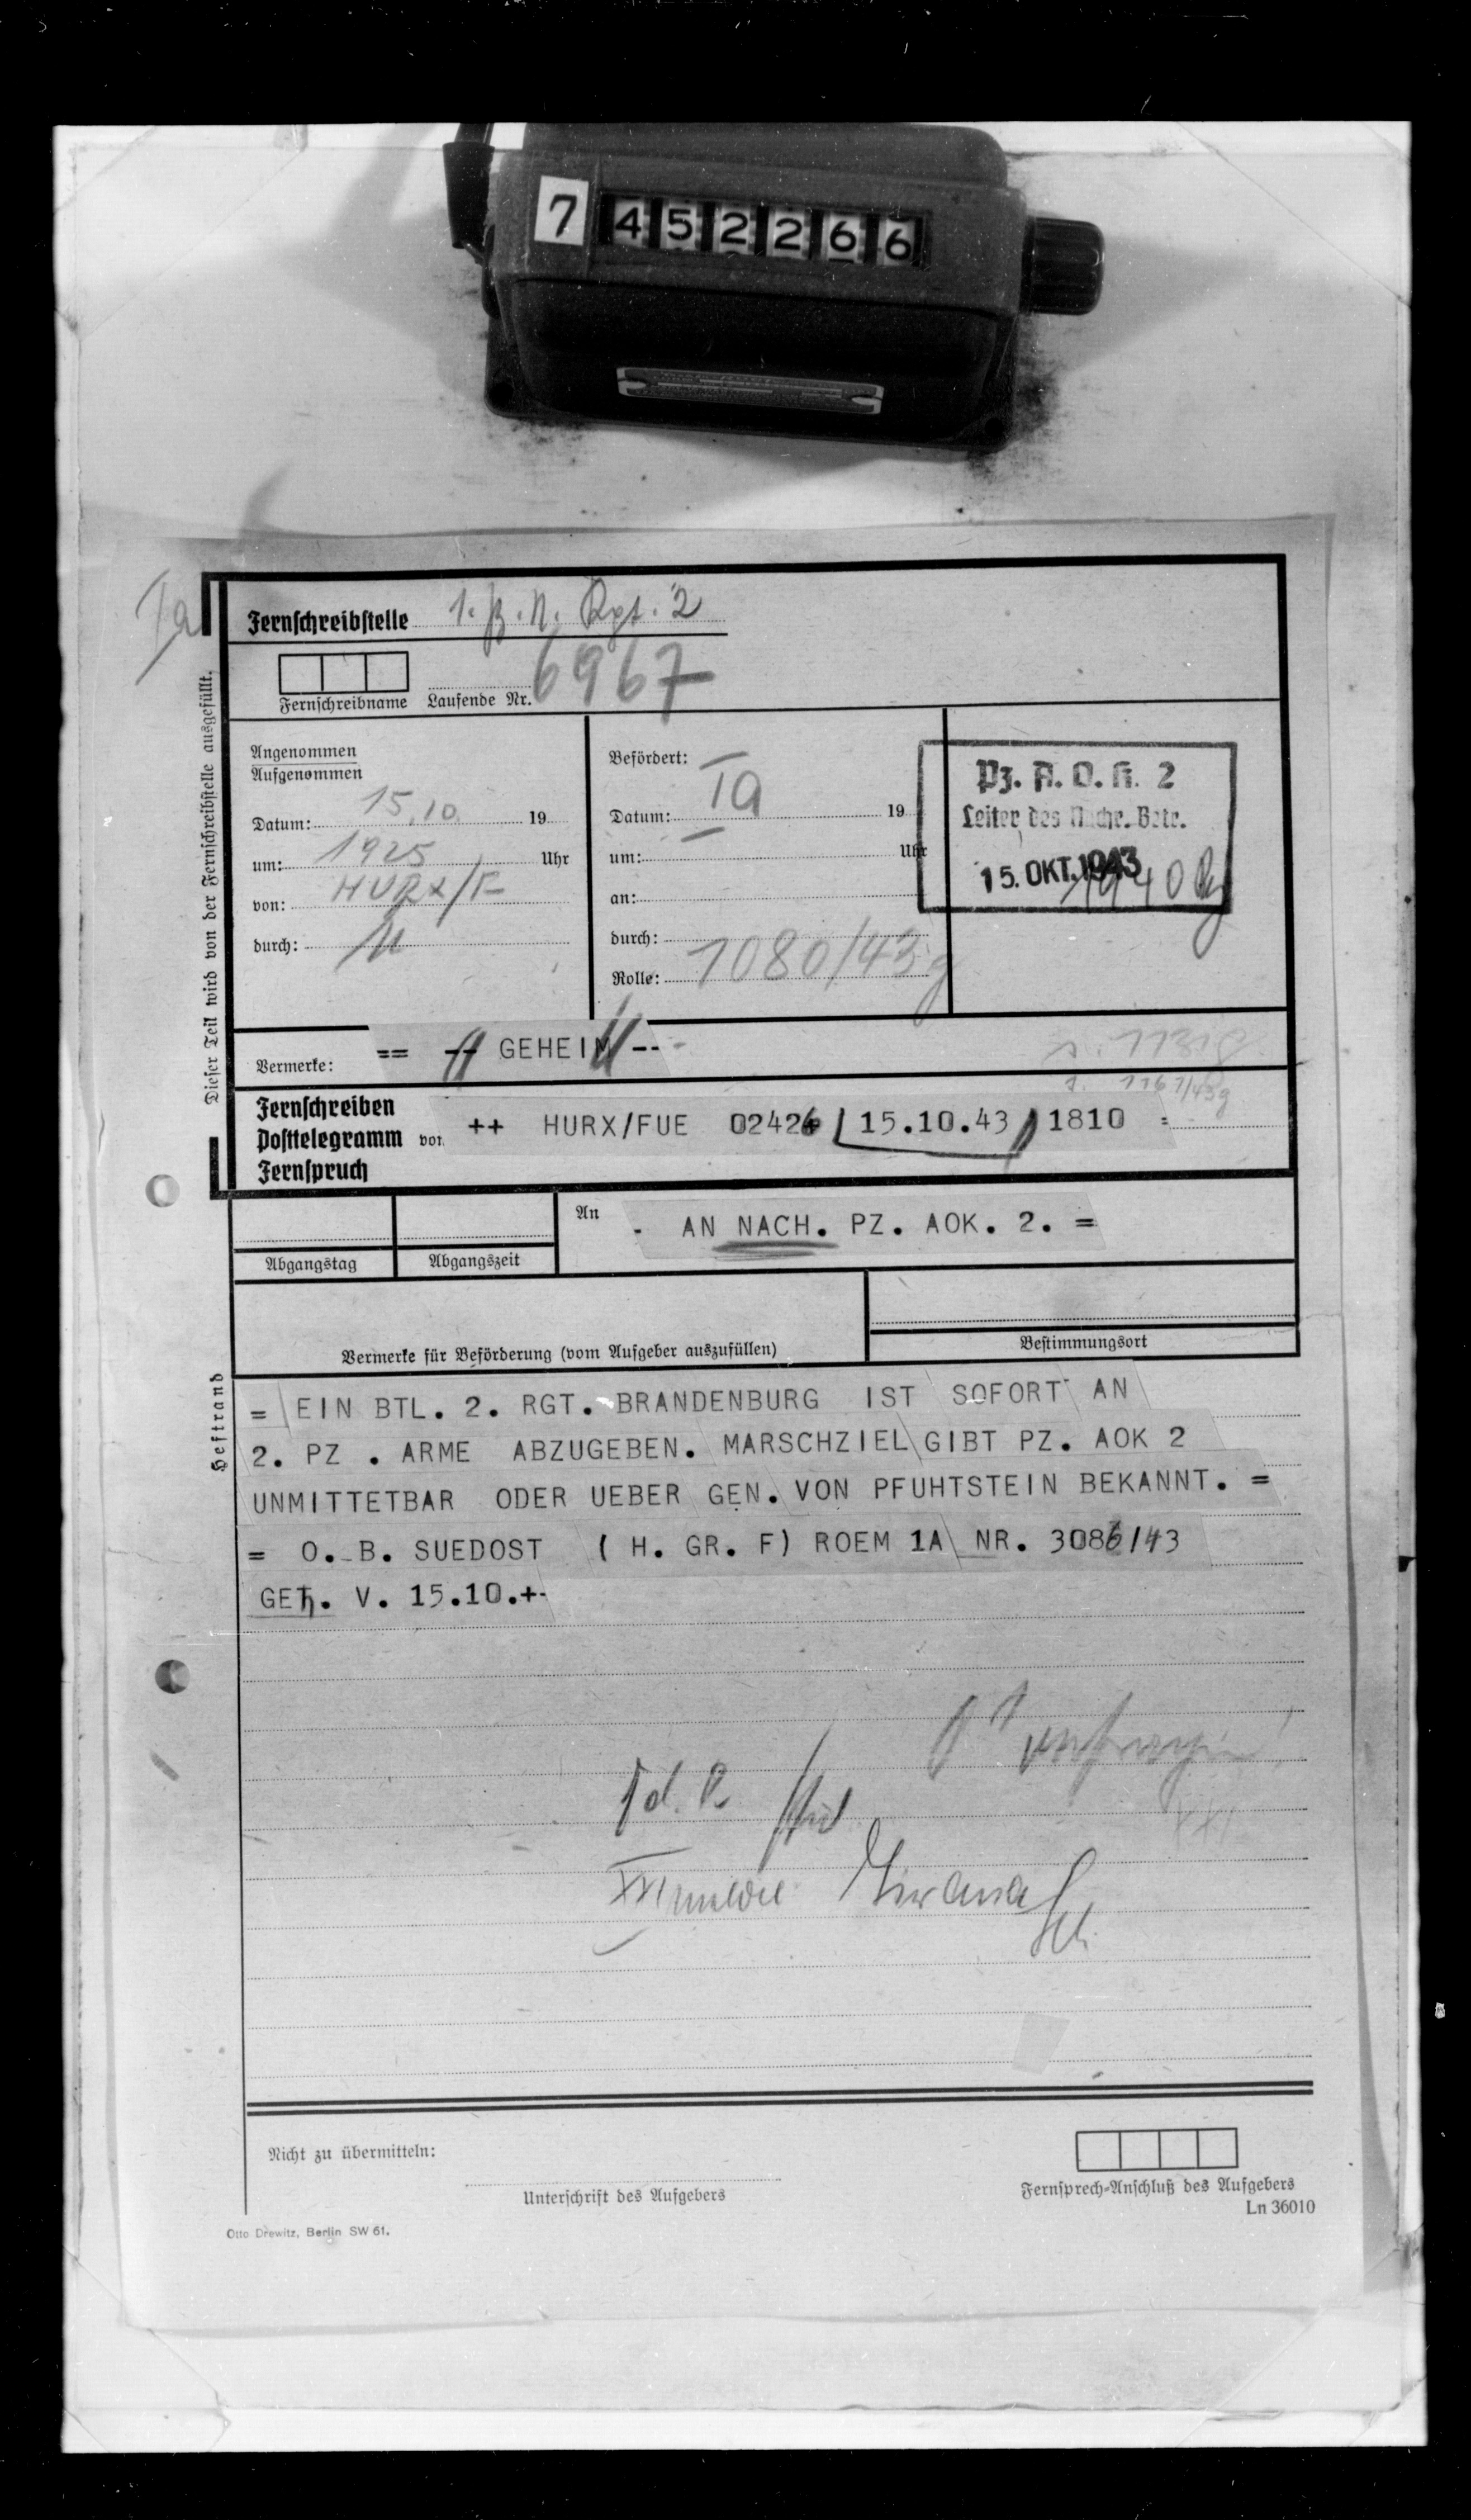 7 452266
Ia
Fernschreibstelle 1. P. N. Rgt. 2
Fernschreibname Laufende Nr. 6967
Dieser Teil wird von der Fernschreibstelle ausgefüllt.
Angenommen
Aufgenommen
Datum: 15.10. 19
um: 1925 Uhr
von: HURX/F
durch:
Befördert:
Ia
Datum: 19
um: Uhr
an:
durch:
Rolle: 1080/43 g
Pz. A. O. K. 2
Leiter des Nachr. Betr.
15. OKT. 1943
1940
Vermerke: == -- GEHEIM --
Fernschreiben
Posttelegramm von ++ HURX/FUE 02426 15.10.43 1810 =
Fernspruch
1167/43g
Abgangstag
Abgangszeit
An - AN NACH. PZ. AOK. 2. =
Vermerke für Beförderung (vom Aufgeber auszufüllen)
Bestimmungsort
Heftrand
= EIN BTL. 2. RGT. BRANDENBURG IST SOFORT AN
2. PZ . ARME ABZUGEBEN. MARSCHZIEL GIBT PZ. AOK 2
UNMITTETBAR ODER UEBER GEN. VON PFUHTSTEIN BEKANNT. =
= O. B. SUEDOST ( H. GR. F) ROEM 1A NR. 3086/43
GEH. V. 15.10.+-
Nicht zu übermitteln:
Unterschrift des Aufgebers
Fernsprech-Anschluß des Aufgebers
Ln 36010
Otto Drewitz, Berlin SW 61.